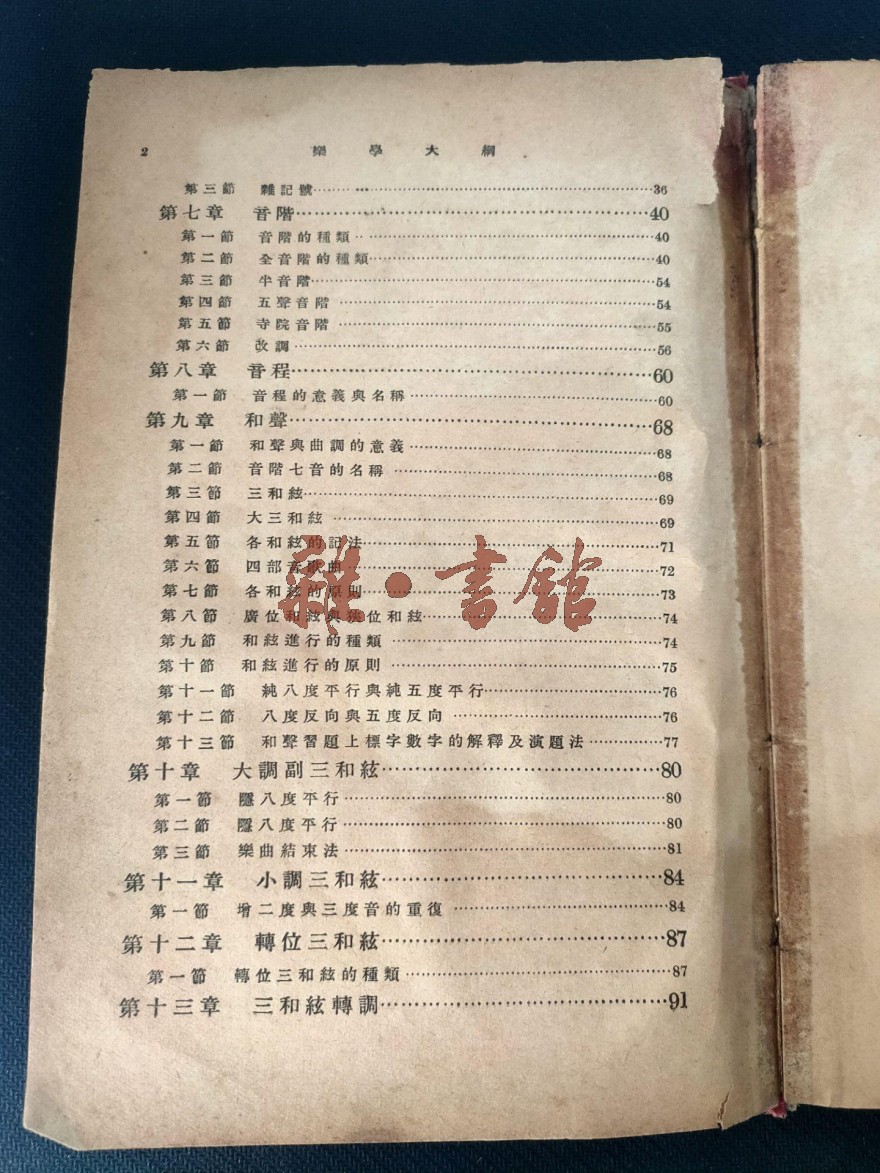 2 樂學大綱
第三節 雜記號 36
第七章 音階 40
第一節 音階的種類 40
第二節 全音階的種類 40
第三節 半音階 54
第四節 五聲音階 54
第五節 寺院音階 55
第六節 改調 56
第八章 音程 60
第一節 音程的意義與名稱 60
第九章 和聲 68
第一節 和聲與曲調的意義 68
第二節 音階七音的名稱 68
第三節 三和絃 69
第四節 大三和絃 69
第五節 各和絃的記法 71
第六節 四部音歌曲 72
第七節 各和絃的原則 73
第八節 廣位和絃與狹位和絃 74
第九節 和絃進行的種類 74
第十節 和絃進行的原則 75
第十一節 純八度平行與純五度平行 76
第十二節 八度反向與五度反向 76
第十三節 和聲習題上標字數字的解釋及演題法 77
第十章 大調副三和絃 80
第一節 隱八度平行 80
第二節 隱八度平行 80
第三節 樂曲結束法 81
第十一章 小調三和絃 84
第一節 增二度與三度音的重復 84
第十二章 轉位三和絃 87
第一節 轉位三和絃的種類 87
第十三章 三和絃轉調 91
雜·書館